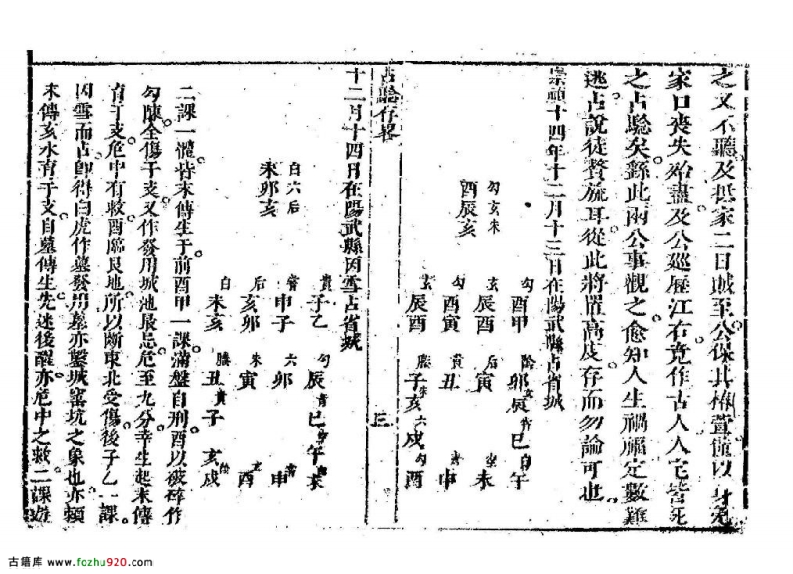 之又不聽及抵家二日賊至公保其椿萱僅以身免
家口喪失殆盡及公巡歷江右竟作古人人宅皆死
之占驗矣繇此兩公事觀之愈知人生禍福定數難
逃占說徒贅疣耳從此將置高庋存而勿論可也
崇禎十四年十二月十三日在陽武縣占省城
勾亥未
酉辰亥
酉甲 卯辰巳午
辰酉 寅 未
酉寅 丑 申
辰酉 子亥戌酉
占驗存畧
三
十二月十四日在陽武縣因雪占省城
白六后
未卯亥
子乙 辰巳午未
申子 卯 申
亥卯 寅 酉
未亥 丑子亥戌
二課一體皆末傳生干前酉甲一課滿盤自刑酉以破碎作
勾陳全傷干支又作發用城池最忌危至九分幸生起末傳
育于支危中有救酉臨艮地所以斷東北受傷後子乙一課
因雪而占卽得白虎作墓發用墓亦鑿城窑坑之象也亦賴
末傳亥水育干支自墓傳生先迷後醒亦危中之救二課遊
古籍库 www.fozhu920.com